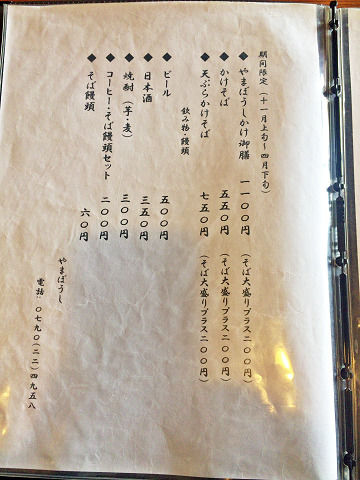 期間限定（十一月上旬～四月下旬）
◆ やまぼうしかけ御膳 一一００円 （そば大盛りプラス二００円）
◆ かけそば 五五０円 （そば大盛りプラス二００円）
◆ 天ぷらかけそば 七五０円 （そば大盛りプラス二００円）
飲み物・饅頭
◆ ビール 五００円
◆ 日本酒 三五０円
◆ 焼酎（芋・麦） 三００円
◆ コーヒー・そば饅頭セット 二００円
◆ そば饅頭 六０円
やまぼうし
電話：０７９０（２２）四九五八